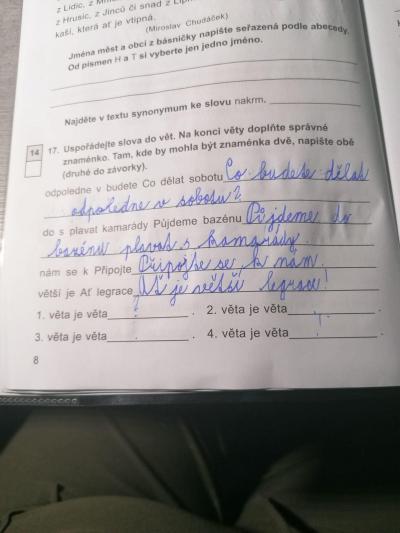 z Lidic, z
z Hrusic, z Jinců či snad z
kaši, která ať je vtipná.
(Miroslav Chudáček)
Jména měst a obcí z básničky napište seřazená podle abecedy.
Od písmen H a T si vyberte jen jedno jméno.
Najděte v textu synonymum ke slovu nakrm.
14
17. Uspořádejte slova do vět. Na konci věty doplňte správné
znaménko. Tam, kde by mohla být znaménka dvě, napište obě
(druhé do závorky).
odpoledne v budete Co dělat sobotu Co budete dělat
odpoledne v sobotu?
do s plavat kamarády Půjdeme bazénu Půjdeme do
bazénu plavat s kamarády.
nám se k Připojte Připojte se k nám.
větší je Ať legrace Ať je větší legrace!
1. věta je věta . 2. věta je věta .
3. věta je věta . 4. věta je věta .
8